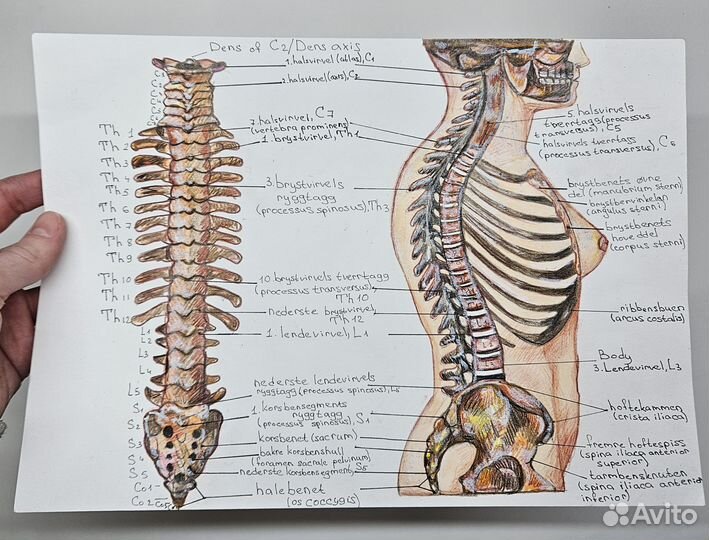 Dens of C2/Dens axis
1. halsvirvel (atlas), C1
2. halsvirvel (axis), C2
7. halsvirvel, C7
(vertebra prominens)
1. brystvirvel, Th 1
3. brystvirvels
ryggtagg
(processus spinosus), Th3
10 brystvirvels tverrtagg
(processus transversus)
Th 10
nederste brystvirvel,
Th 12
1. lendevirvel, L1
nederste lendevirvels
ryggtagg (processus spinosus), L5
1. korsbensegments
ryggtagg
(processus spinosus), S1
korsbenet (sacrum)
bakre korsbenshull
(foramen sacrale pelvinum)
nederste korsbensegment, S5
halebenet
(os coccygis)
C1
C2
Th 1
Th 2
Th 3
Th 4
Th 5
Th 6
Th 7
Th 8
Th 9
Th 10
Th 11
Th 12
L1
L2
L3
L4
L5
S1
S2
S3
S4
S5
Co 1
Co 2
5. halsvirvels
tverrtagg (processus
transversus), C5
halsvirvels tverrtagg
(processus transversus), C6
brystbenets øvre
del (manubrium sterni)
brystbenvinkelen
(angulus sterni)
brystbenets
hoveddel
(corpus sterni)
ribbensbuen
(arcus costalis)
Body
3. Lendevirvel, L3
hoftekammen
(crista iliaca)
fremre hoftespiss
(spina iliaca anterior
superior)
tarmbensknuten
(spina iliaca anterior
inferior)
Avito